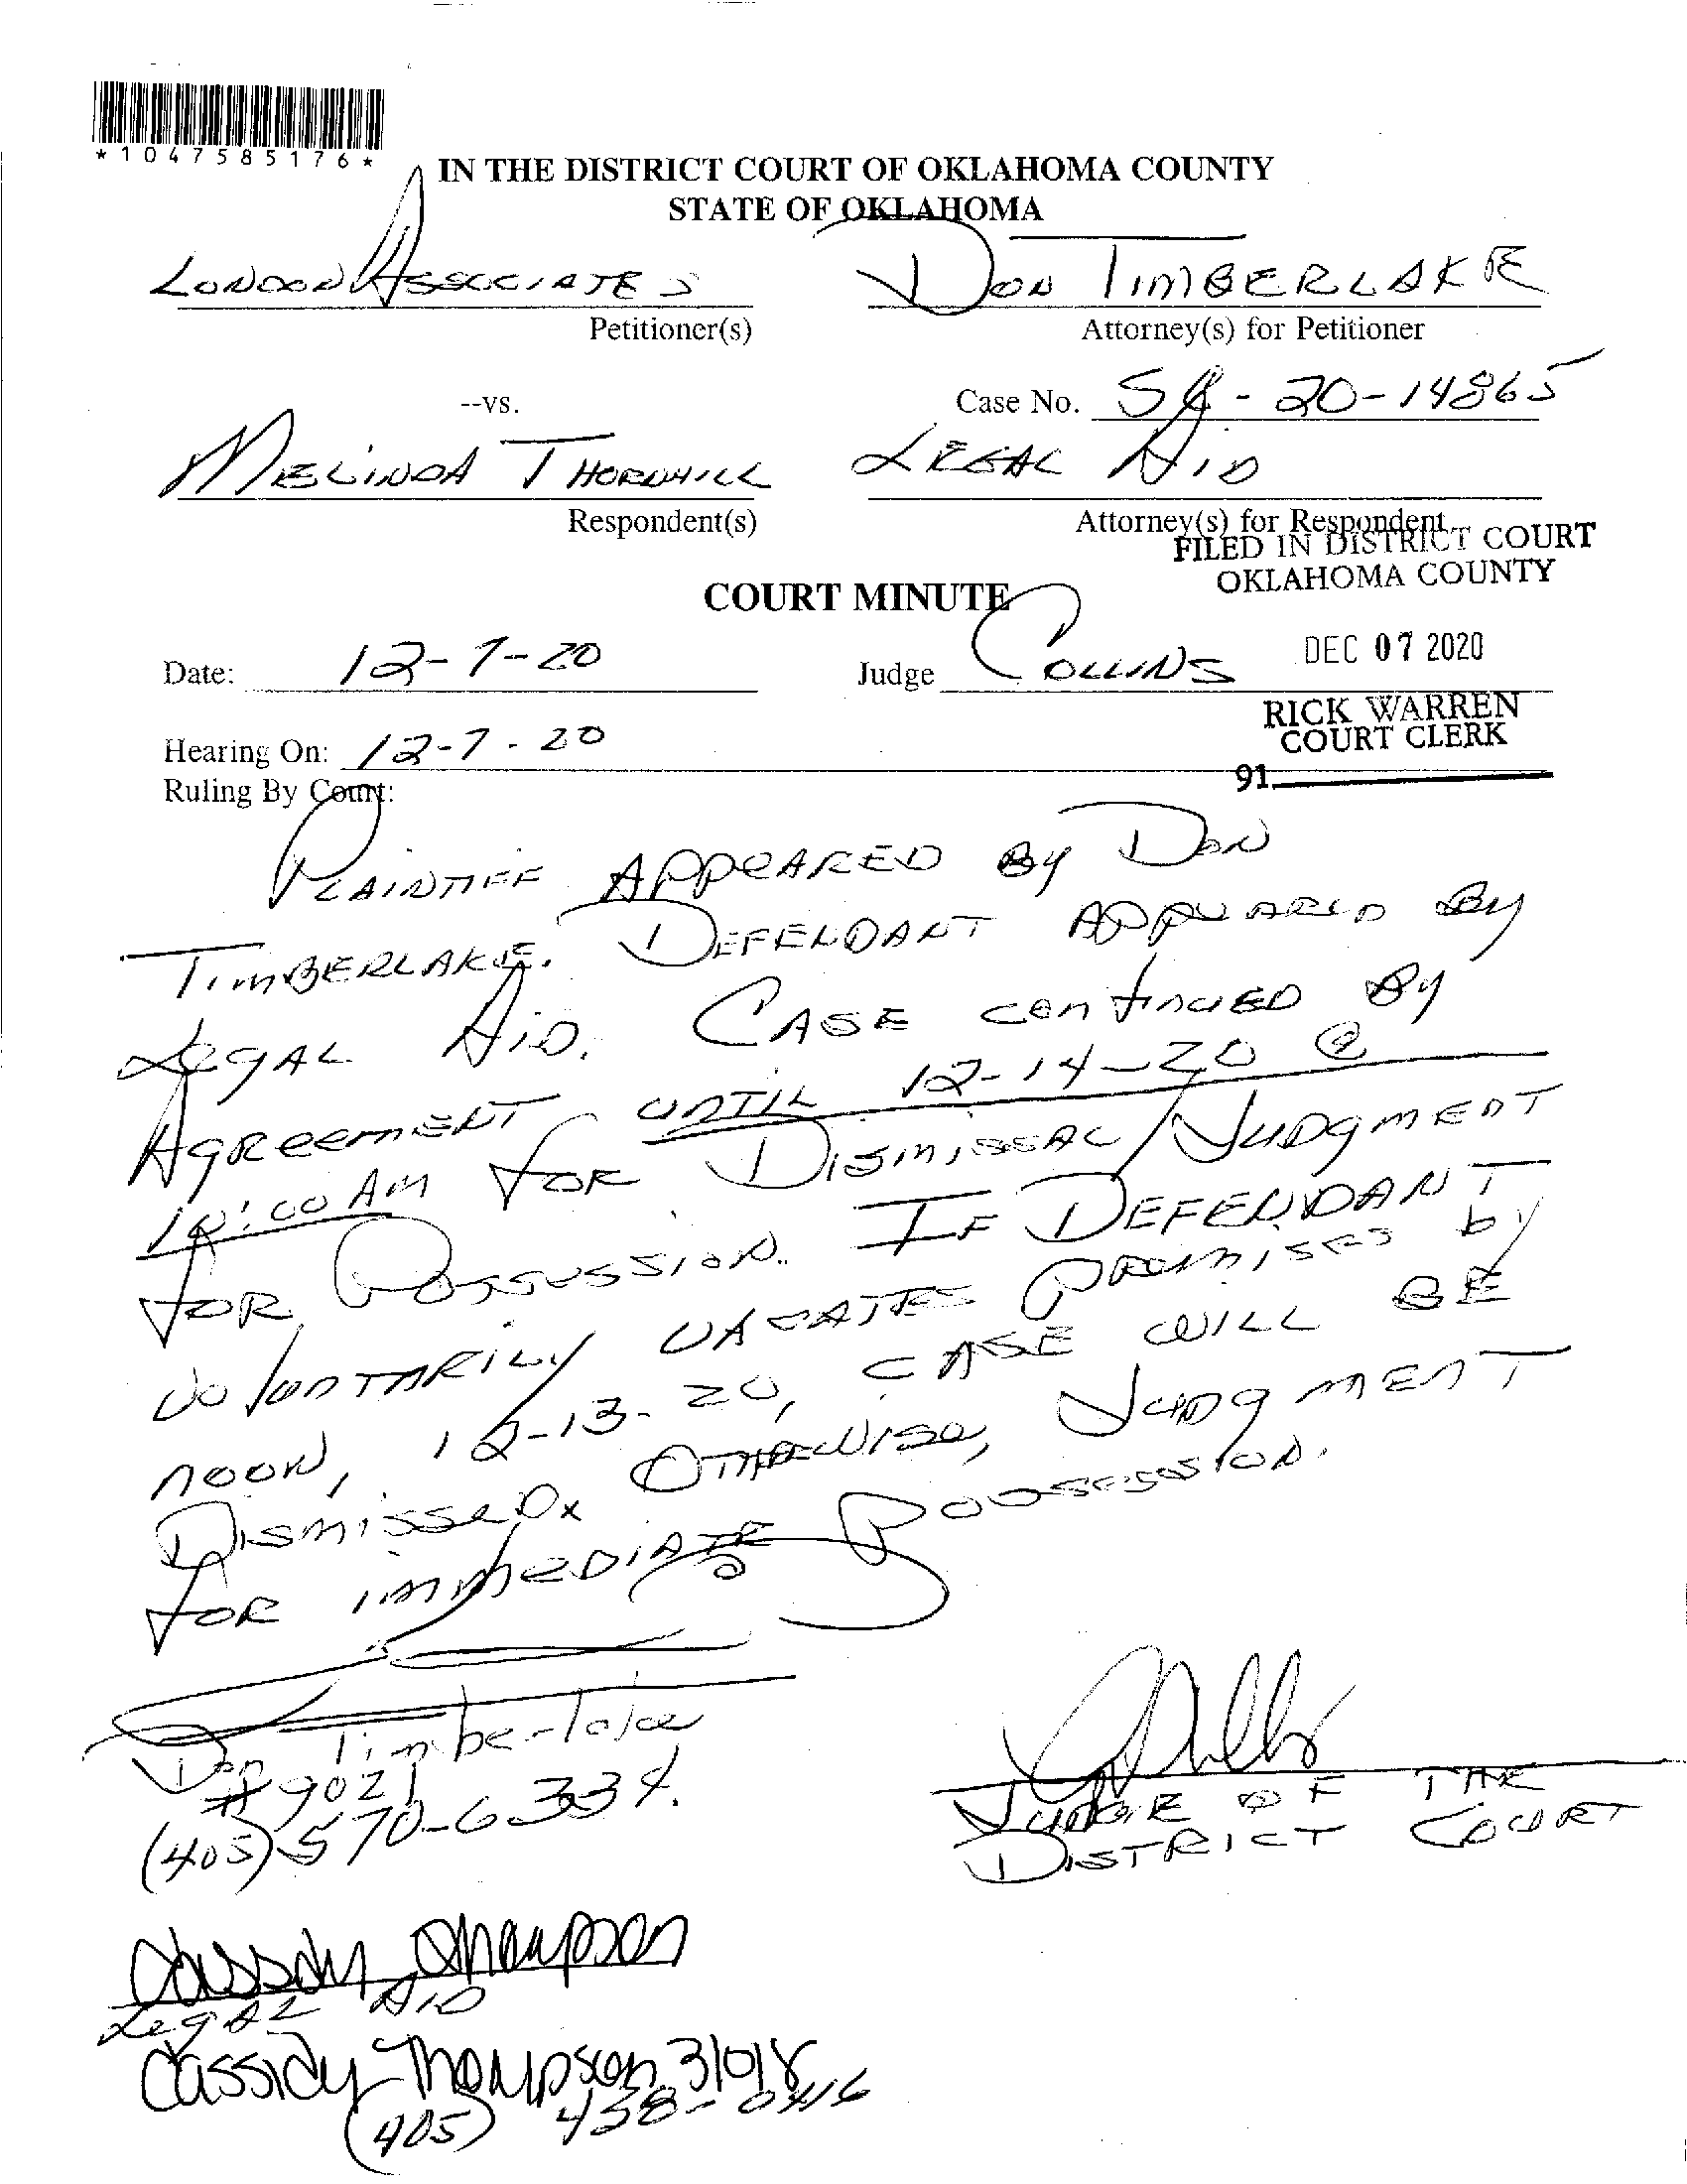 *1047585176*
IN THE DISTRICT COURT OF OKLAHOMA COUNTY
STATE OF OKLAHOMA
LONDON ASSOCIATES
DON TIMBERLAKE
Petitioner(s)
Attorney(s) for Petitioner
--vs.
Case No. SC-20-14865
MELINDA THORNHILL
LEGAL AID
Respondent(s)
Attorney(s) for Respondent
FILED IN DISTRICT COURT
OKLAHOMA COUNTY
COURT MINUTE
DEC 07 2020
Date: 12-7-20
Judge COLLINS
RICK WARREN
COURT CLERK
Hearing On: 12-7-20
91
Ruling By Court:
PLAINTIFF APPEARED BY DON
TIMBERLAKE. DEFENDANT APPEARED BY
LEGAL AID. CASE continued By
AGREEMENT UNTIL 12-14-20 @
10:00 AM FOR DISMISSAL/JUDGMENT
FOR POSSESSION. IF DEFENDANT
VOLUNTARILY VACATES PREMISES by
NOON, 12-13-20, CASE WILL BE
DISMISSED. OTHERWISE, JUDGMENT
FOR IMMEDIATE POSSESSION.
Don Timberlake
#9021
(405) 570-6334.
JUDGE OF THE
DISTRICT COURT
Cassidy Thompson
LEGAL AID
Cassidy Thompson 31018
(405) 438-0416